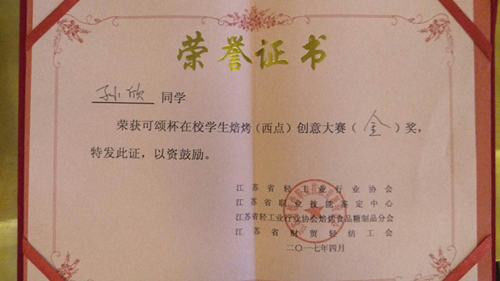 荣誉证书
孙欣 同学
荣获可颂杯在校学生焙烤(西点)创意大赛(金)奖,
特发此证,以资鼓励。
江苏省轻工业行业协会
江苏省职业技能鉴定中心
江苏省轻工业行业协会焙烤食品糖制品分会
江苏省财贸轻纺工会
二〇一七年四月